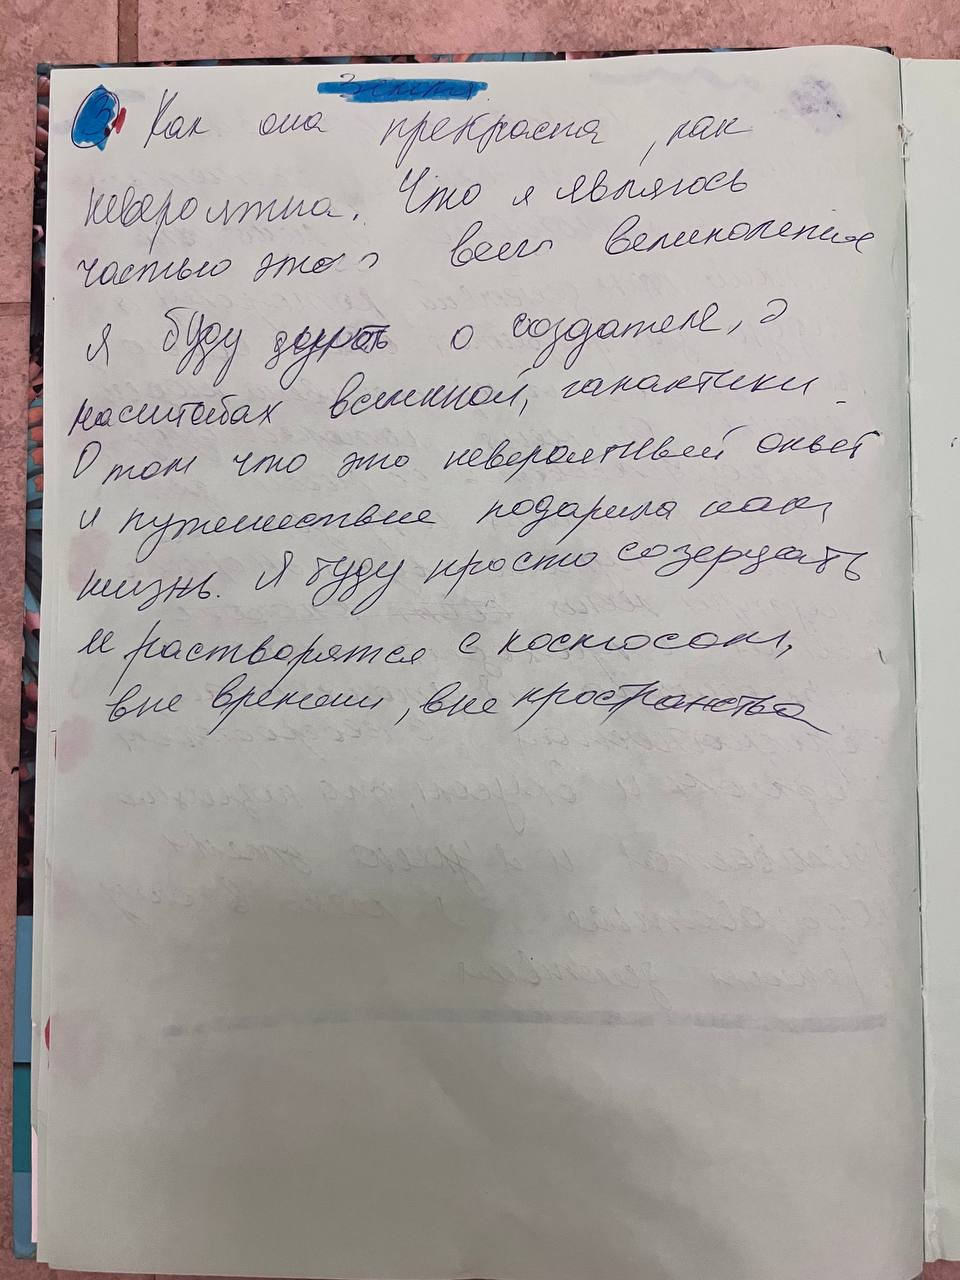 Земля
3. Как она прекрасна, как
невероятна. Что я являюсь
частью этого всего великолепия
Я буду думать о создателе, о
масштабах вселенной, галактики.
О том что это невероятный опыт
и путешествие подарила нам,
жизнь. Я буду просто созерцать
и растворятся с космосом,
вне времени, вне пространства